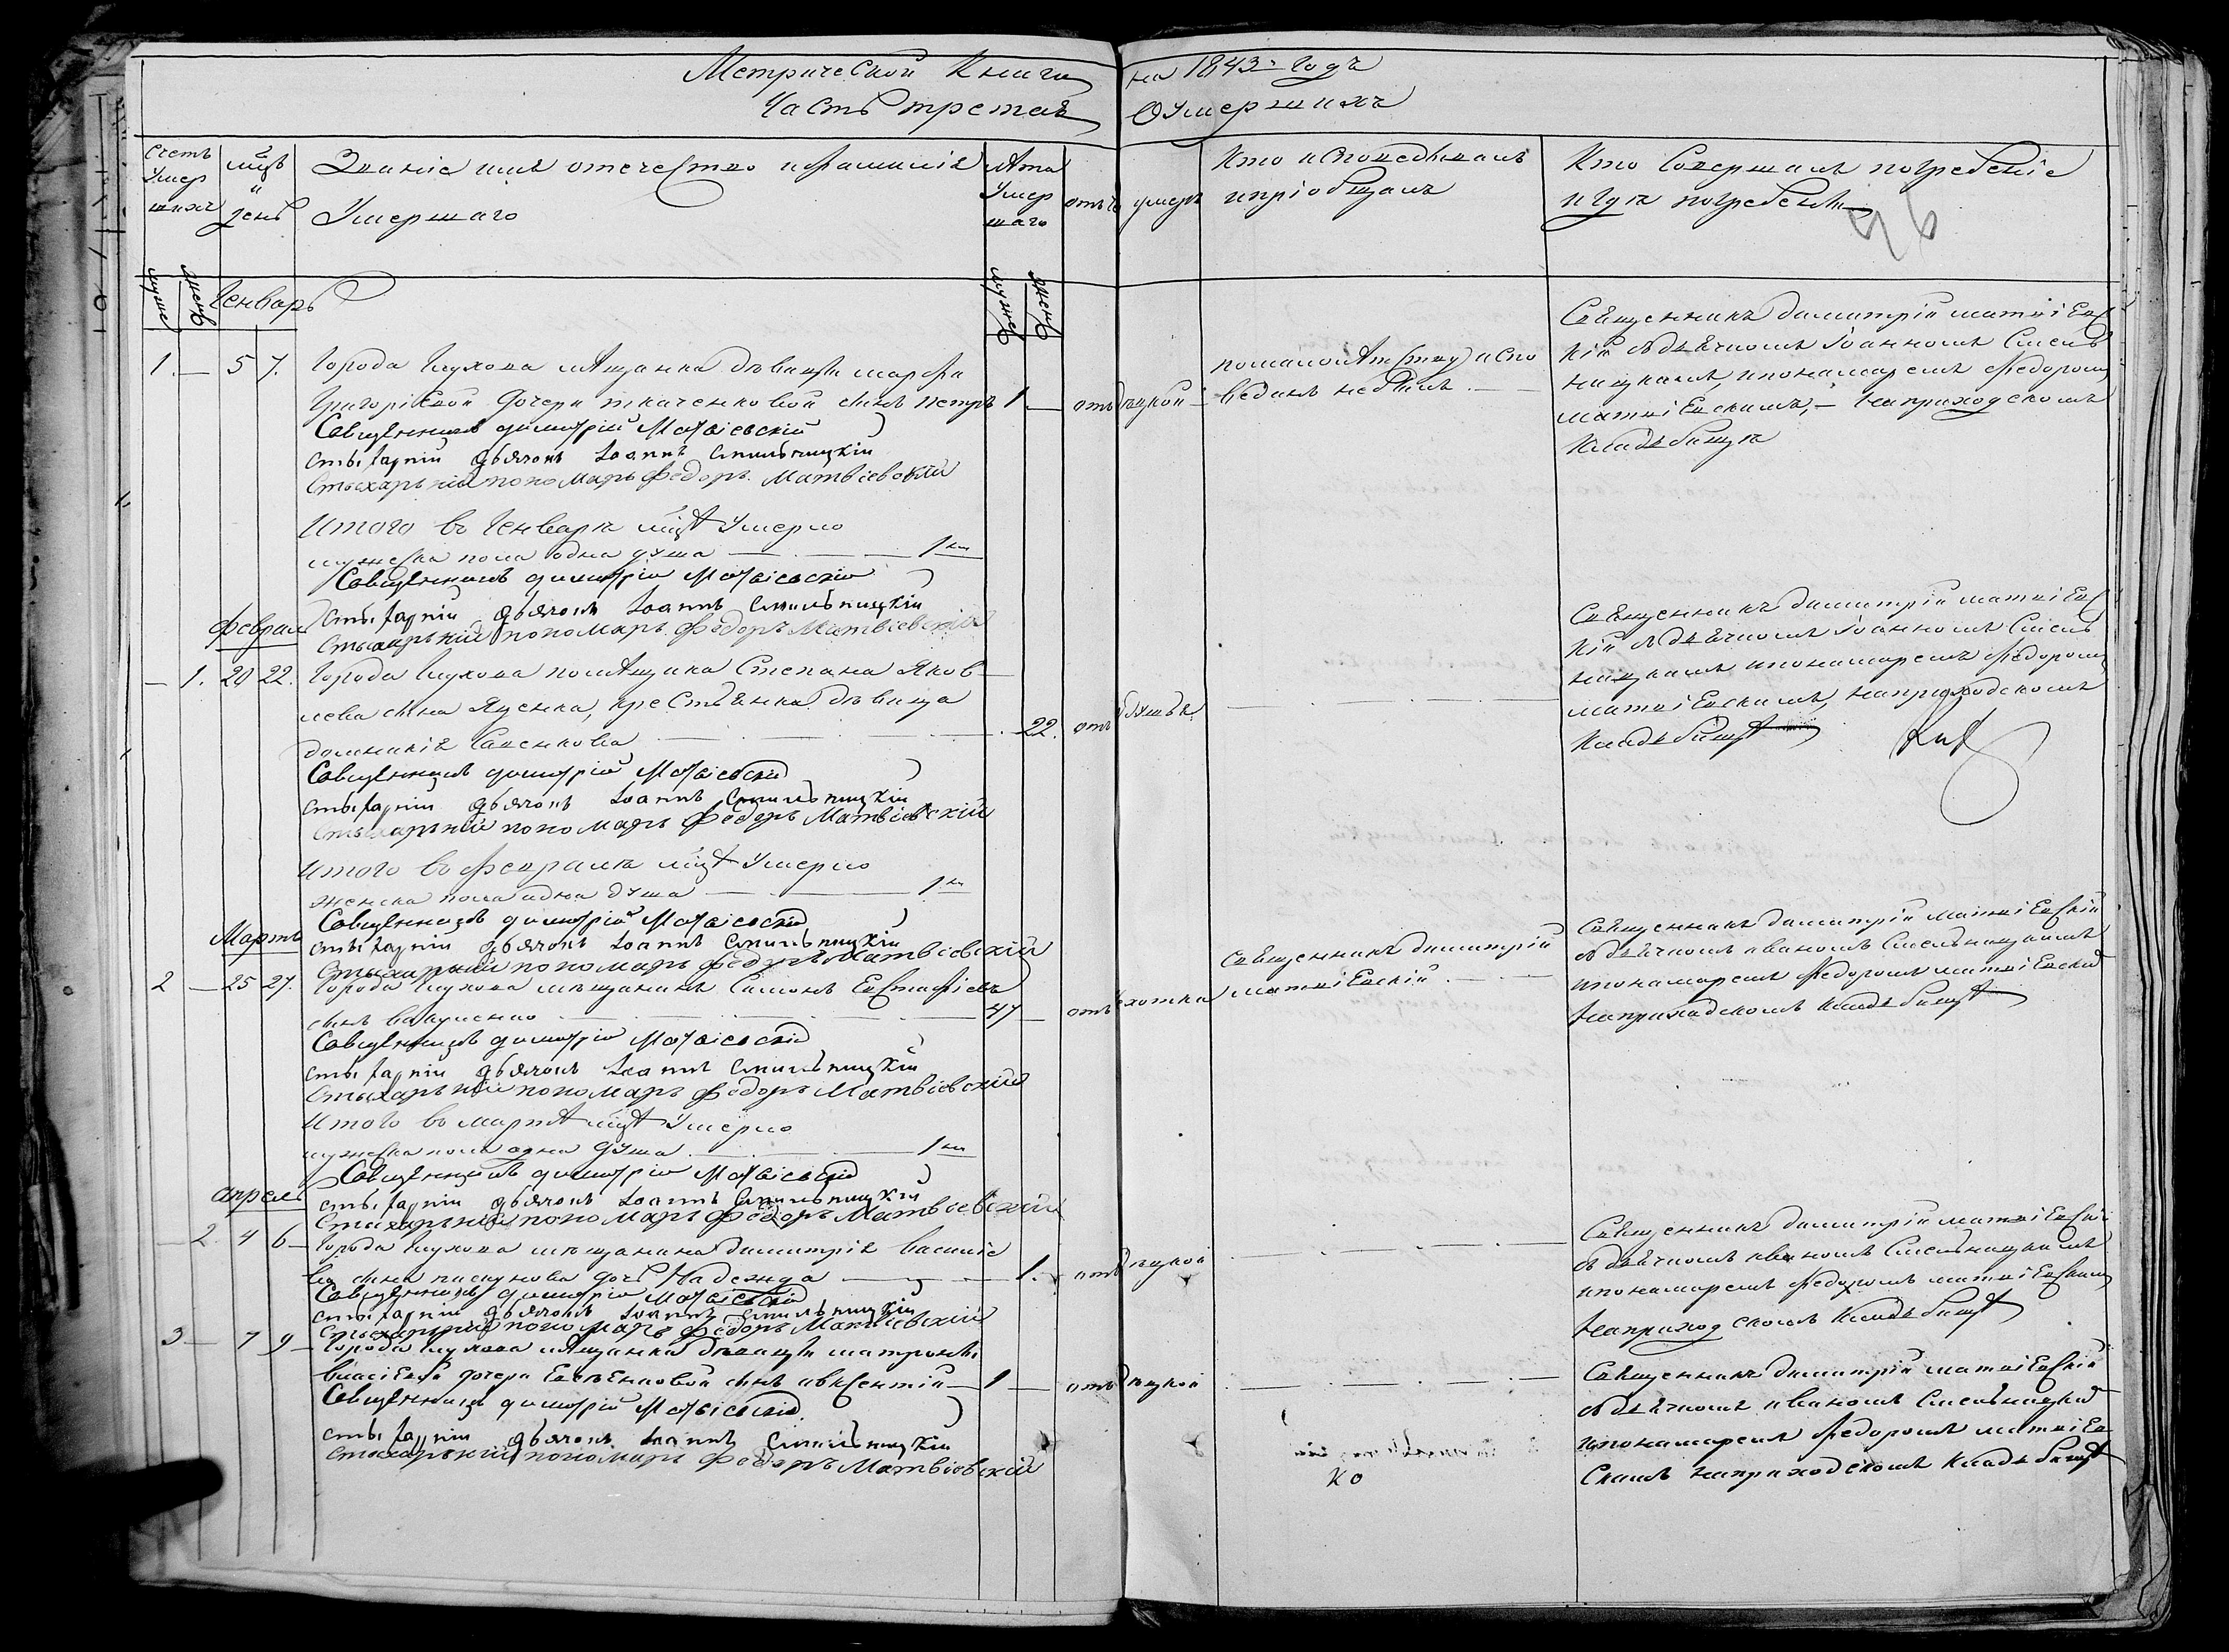 Метрической Книги на 1843й Годъ
Часть третая О Умершихъ
Счетъ Умер шихъ
мцъ и день
Званіе имя отечество и фамилія Умершаго
Лѣта Умер шаго
отъ чего умеръ
Кто исповедывалъ и пріобщалъ
Кто Совершалъ погребеніе и гдѣ погребенъ
96
муже женъ
Генварь
муже женъ
1. — 5 7. Города Глухова мѣщанки дѣвицы марфы
Григоріевой дочери ткаченковой сынъ петръ 1 — отъ
помалолѣтству испо
веданъ небылъ
Священникъ димитрій матвіевс
кій съ дьячкомъ Іоанномъ Смель
ницкимъ, и понамаремъ Федоромъ
матвіевскимъ, — на приходскомъ
Кладбищѣ
Священникъ димитрій Матвіевскій
стыхарній дьячокъ Іоаннъ Смельницкій
Стыхарьній пономарь Федоръ Матвіевскій
Итого въ Генварѣ мцѣ Умерло
мужеска пола одна душа — 1на
Священникъ димитрій Матвіевскій
стыхарній дьячокъ Іоаннъ Смельницкій
Стыхарьній пономарь Федоръ Матвіевскій
Февраль
— 1. 20 22. Города Глухова помѣщика Степана Яков
лева сына Яценка, крестьянка дѣвица
Савенкова 22. отъ
Священникъ димитрій матвіевс
кій съ дьячкомъ Іоанномъ Смель
ницкимъ и понамаремъ Федоромъ
матвіевскимъ, на приходскомъ
Кладбищѣ
Священникъ димитрій Матвіевскій
стыхарній дьячокъ Іоаннъ Смельницкій
Стыхарьній пономарь Федоръ Матвіевскій
Итого въ Февралѣ мцѣ Умерло
женска пола одна душа — 1на
Священникъ димитрій Матвіевскій
стыхарній дьячокъ Іоаннъ Смельницкій
Стыхарьній пономарь Федоръ Матвіевскій
Мартъ
2 — 25 27. Города Глухова мѣщанинъ Симонъ Евстафіевъ
сынъ 47 — отъ
Священникъ димитрій
матвіевскій
Священникъ димитрій матвіевскій
съ дьячкомъ иваномъ Смельницкимъ
и понамаремъ Федоромъ матвіевским
на приходскомъ Кладбищѣ
Священникъ димитрій Матвіевскій
стыхарній дьячокъ Іоаннъ Смельницкій
Стыхарьній пономарь Федоръ Матвіевскій
Итого въ мартѣ мцѣ Умерло
мужеска пола одна душа — 1на
Священникъ димитрій Матвіевскій
стыхарній дьячокъ Іоаннъ Смельницкій
Стыхарьній пономарь Федоръ Матвіевскій
апрель
— 2. 4 6 — Города Глухова мѣщанина димитрія василіе
ва сына пискунова дочь Надежда — 1. отъ
Священникъ димитрій матвіевскій
съ дьячкомъ иваномъ Смельницкимъ
и понамаремъ Федоромъ матвіевским
на приходскомъ Кладбищѣ
Священникъ димитрій Матвіевскій
стыхарній дьячокъ Іоаннъ Смельницкій
Стыхарьній пономарь Федоръ Матвіевскій
3 — 7 9 — Города Глухова мѣщанки дѣвицы матроны
власіевой дочери сынъ авксентій — 1 — отъ
Священникъ димитрій матвіевскій
съ дьячкомъ иваномъ Смельницким
и понамаремъ Федоромъ матвіев
скимъ на приходскомъ Кладбищѣ
Священникъ димитрій Матвіевскій
стыхарній дьячокъ Іоаннъ Смельницкій
Стыхарьній пономарь Федоръ Матвіевскій
ко